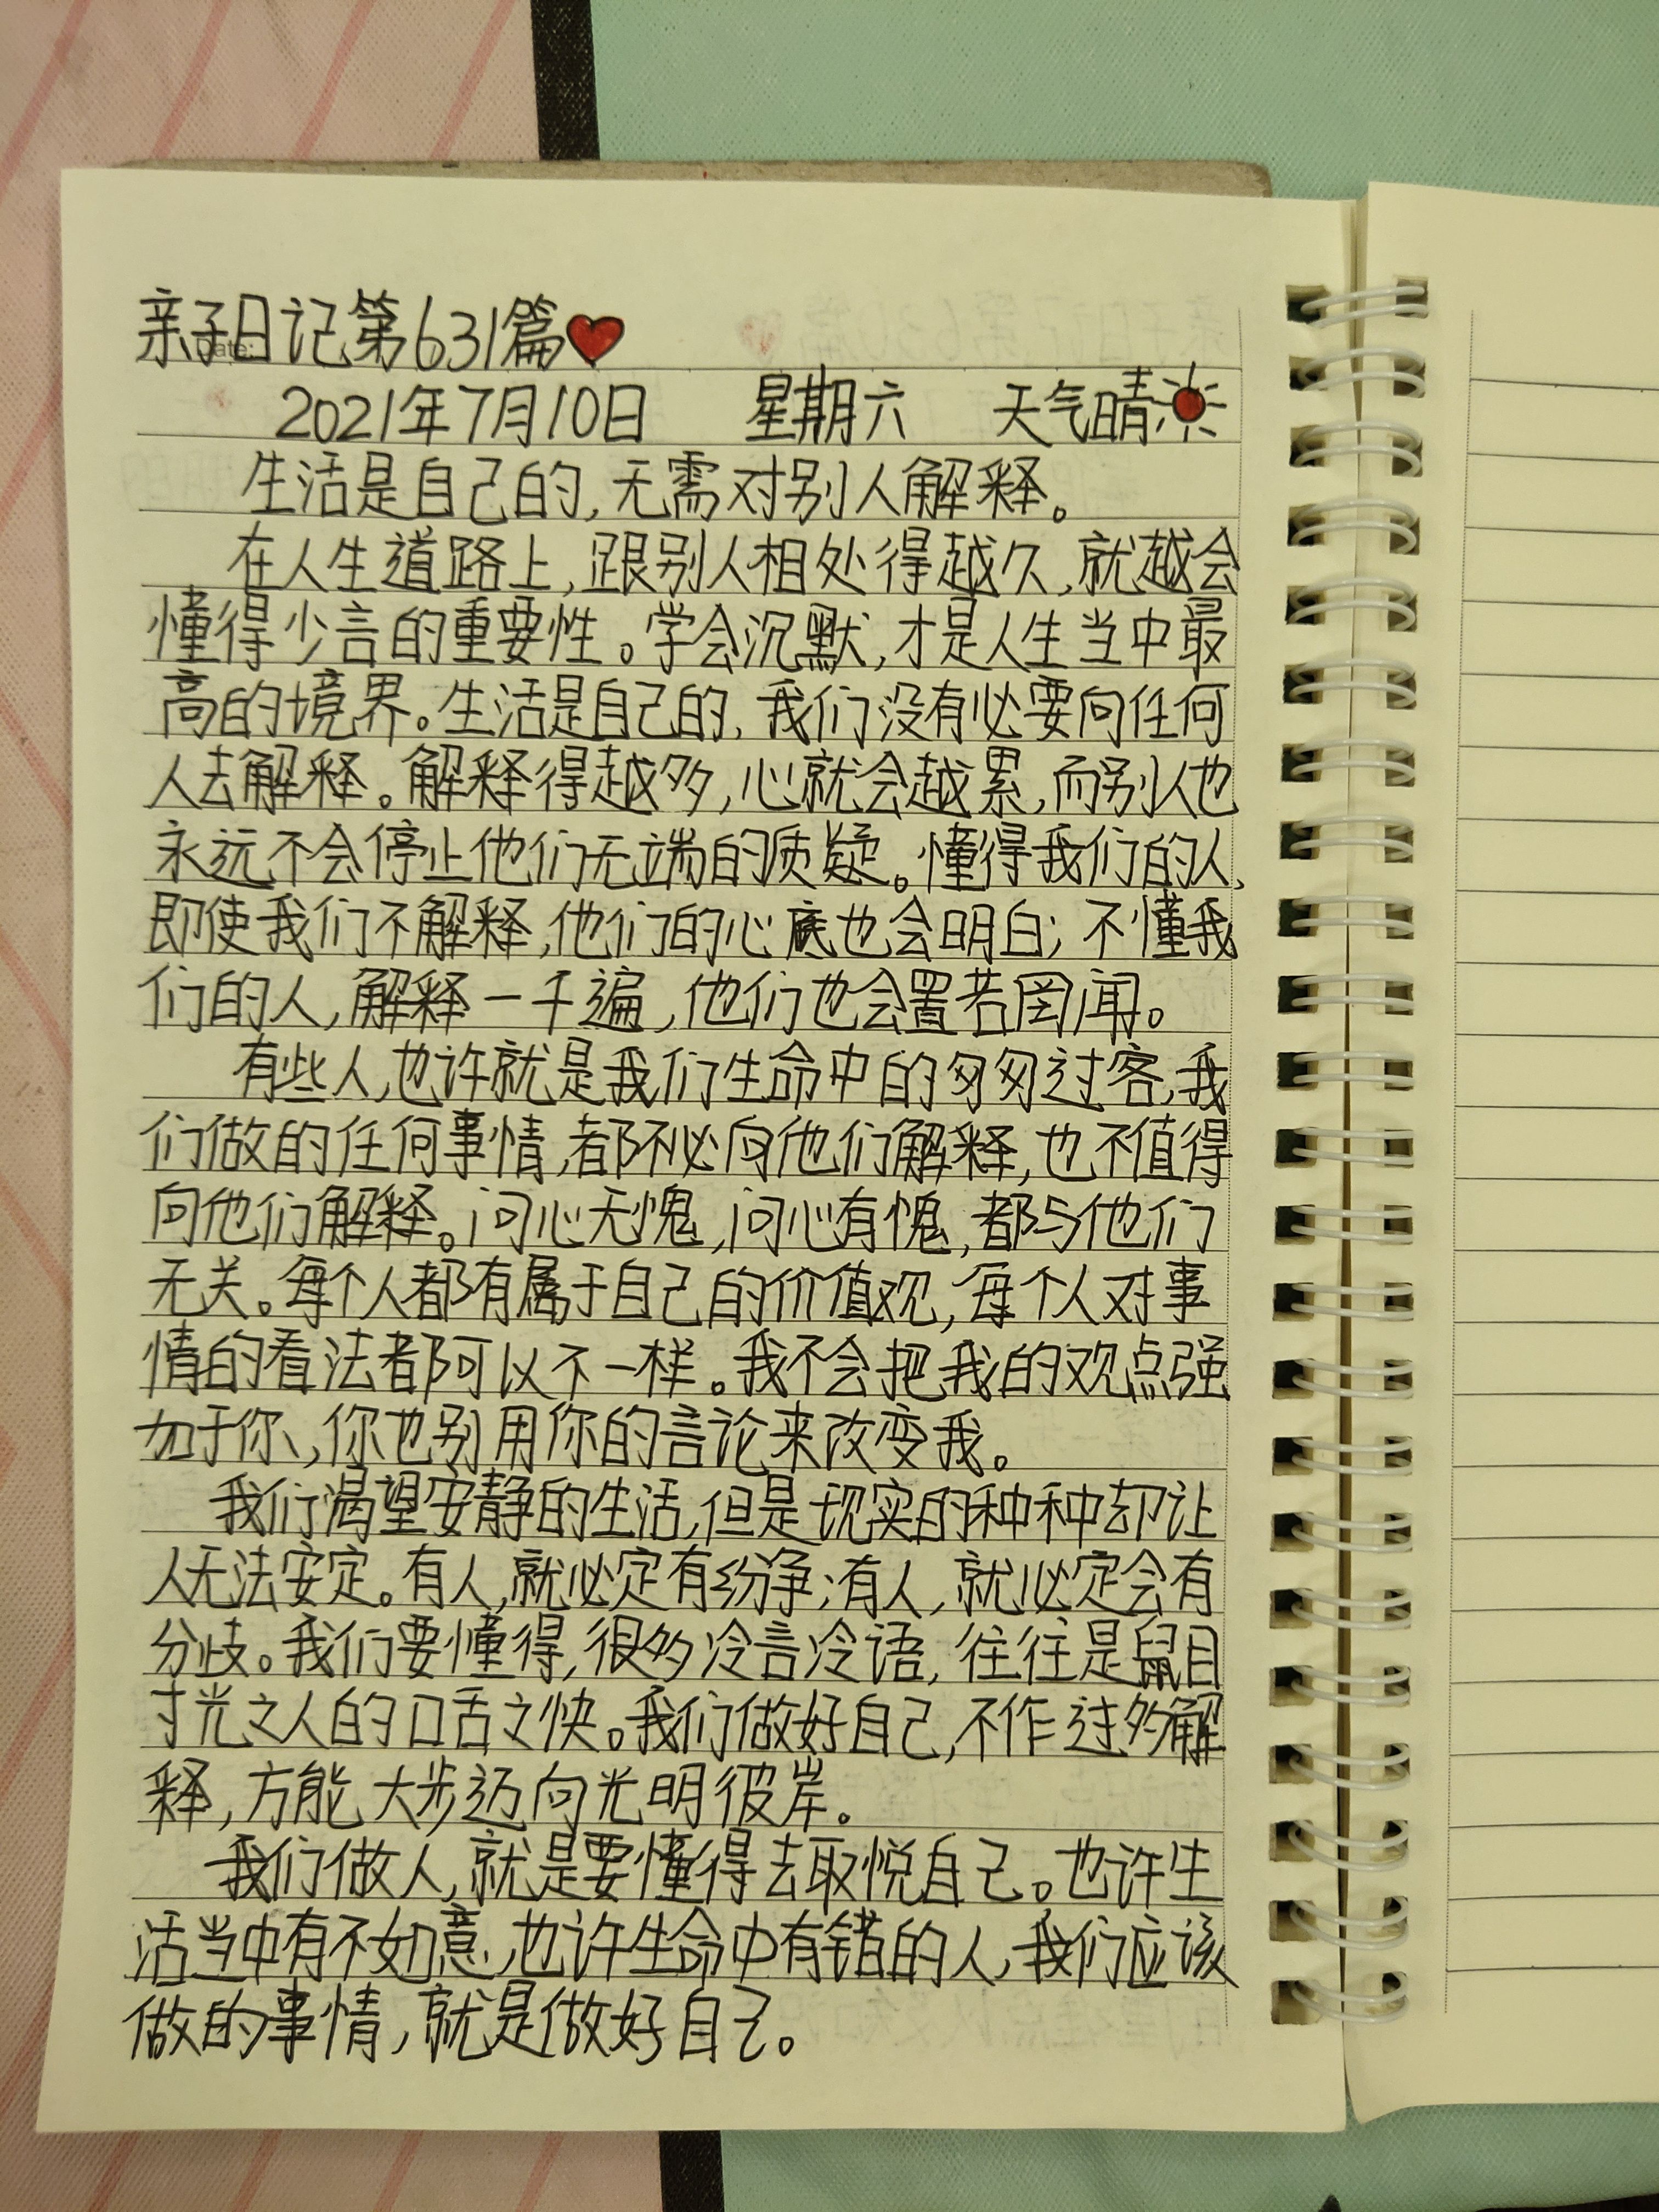 亲子日记第631篇
2021年7月10日 星期六 天气晴
生活是自己的,无需对别人解释。
在人生道路上,跟别人相处得越久,就越会
懂得少言的重要性。学会沉默,才是人生当中最
高的境界。生活是自己的,我们没有必要向任何
人去解释。解释得越多,心就会越累,而别人也
永远不会停止他们无端的质疑。懂得我们的人,
即使我们不解释,他们的心底也会明白;不懂我
们的人,解释一千遍,他们也会置若罔闻。
有些人,也许就是我们生命中的匆匆过客,我
们做的任何事情,都不必向他们解释,也不值得
向他们解释。问心无愧,问心有愧,都与他们
无关。每个人都有属于自己的价值观,每个人对事
情的看法都可以不一样。我不会把我的观点强
加于你,你也别用你的言论来改变我。
我们渴望安静的生活,但是现实的种种却让
人无法安定。有人,就必定有纷争;有人,就必定会有
分歧。我们要懂得,很多冷言冷语,往往是鼠目
寸光之人的口舌之快。我们做好自己,不作过多解
释,方能大步迈向光明彼岸。
我们做人,就是要懂得去取悦自己。也许生
活当中有不如意,也许生命中有错的人,我们应该
做的事情,就是做好自己。